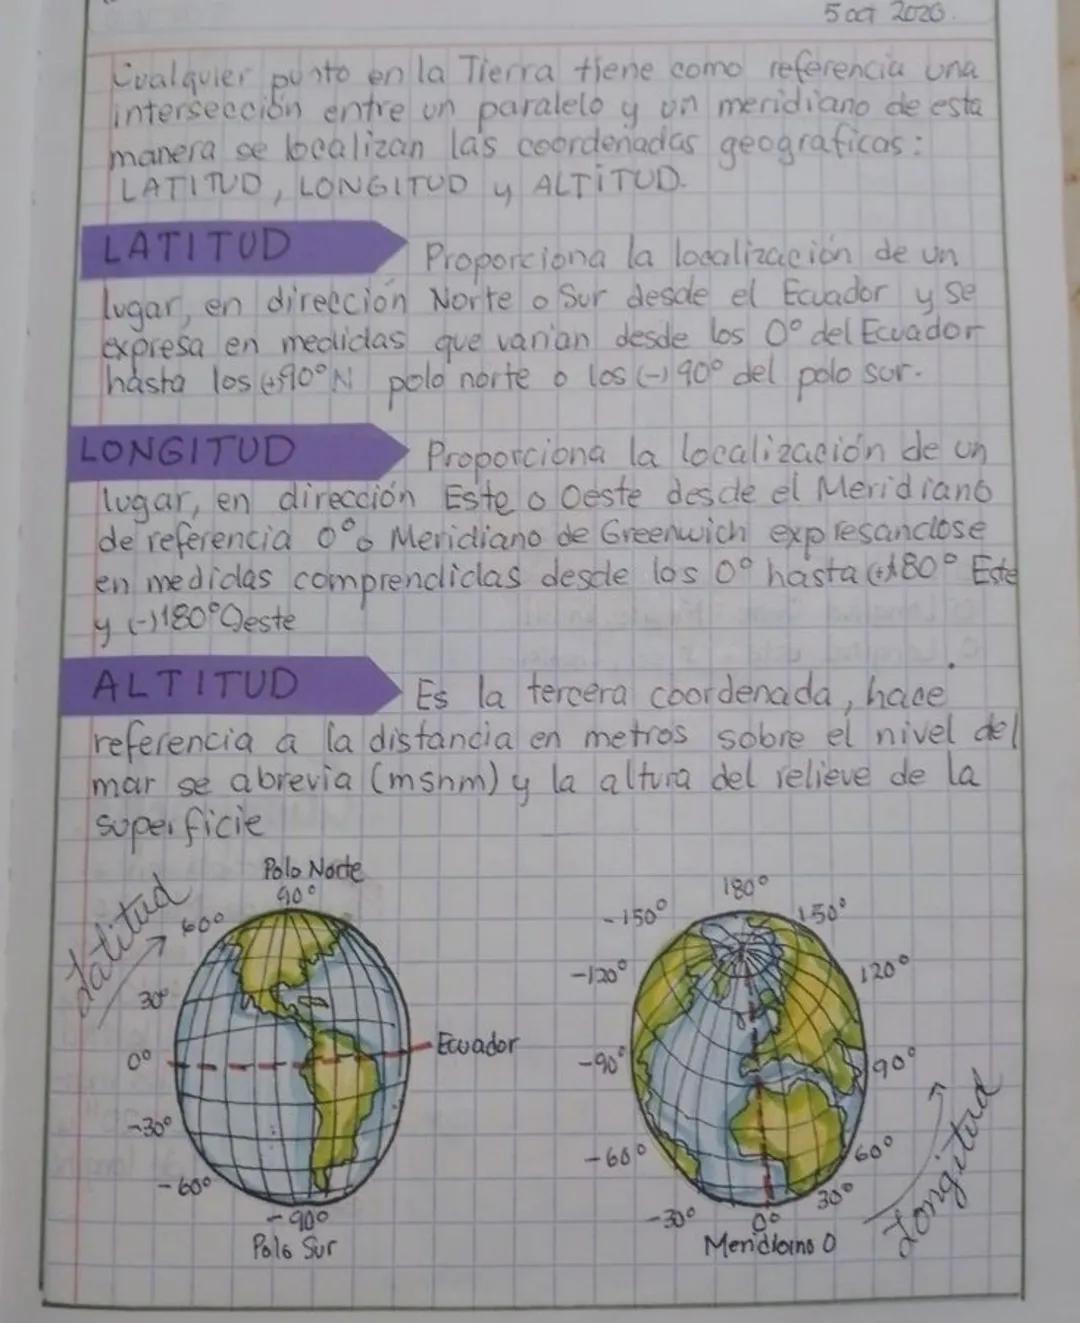 5 oct 2020.
Cualquier punto en la Tierra tiene como referencia una
intersección entre un paralelo y un meridiano de esta
manera se localizan las coordenadas geograficas:
LATITUD, LONGITUD y ALTITUD.
LATITUD Proporciona la localización de un
lugar, en dirección Norte o Sur desde el Ecuador y se
expresa en medidas que varían desde los 0° del Ecuador
hasta los (+)90°N polo norte o los (-) 90° del polo sur.
LONGITUD Proporciona la localización de un
lugar, en dirección Este o Oeste desde el Meridiano
de referencia 0° o Meridiano de Greenwich expresandose
en medidas comprendidas desde los 0° hasta (+)180° Este
y (-)180° Oeste
ALTITUD Es la tercera coordenada, hace
referencia a la distancia en metros sobre el nivel del
mar se abrevia (msnm) y la altura del relieve de la
superficie
Polo Norte
90°
60°
Latitud
30°
0°
Ecuador
-30°
-60°
-90°
Polo Sur
180°
-150°
150°
-120°
120°
-90°
90°
-60°
60°
-30°
0°
30°
Meridiano 0
Longitud